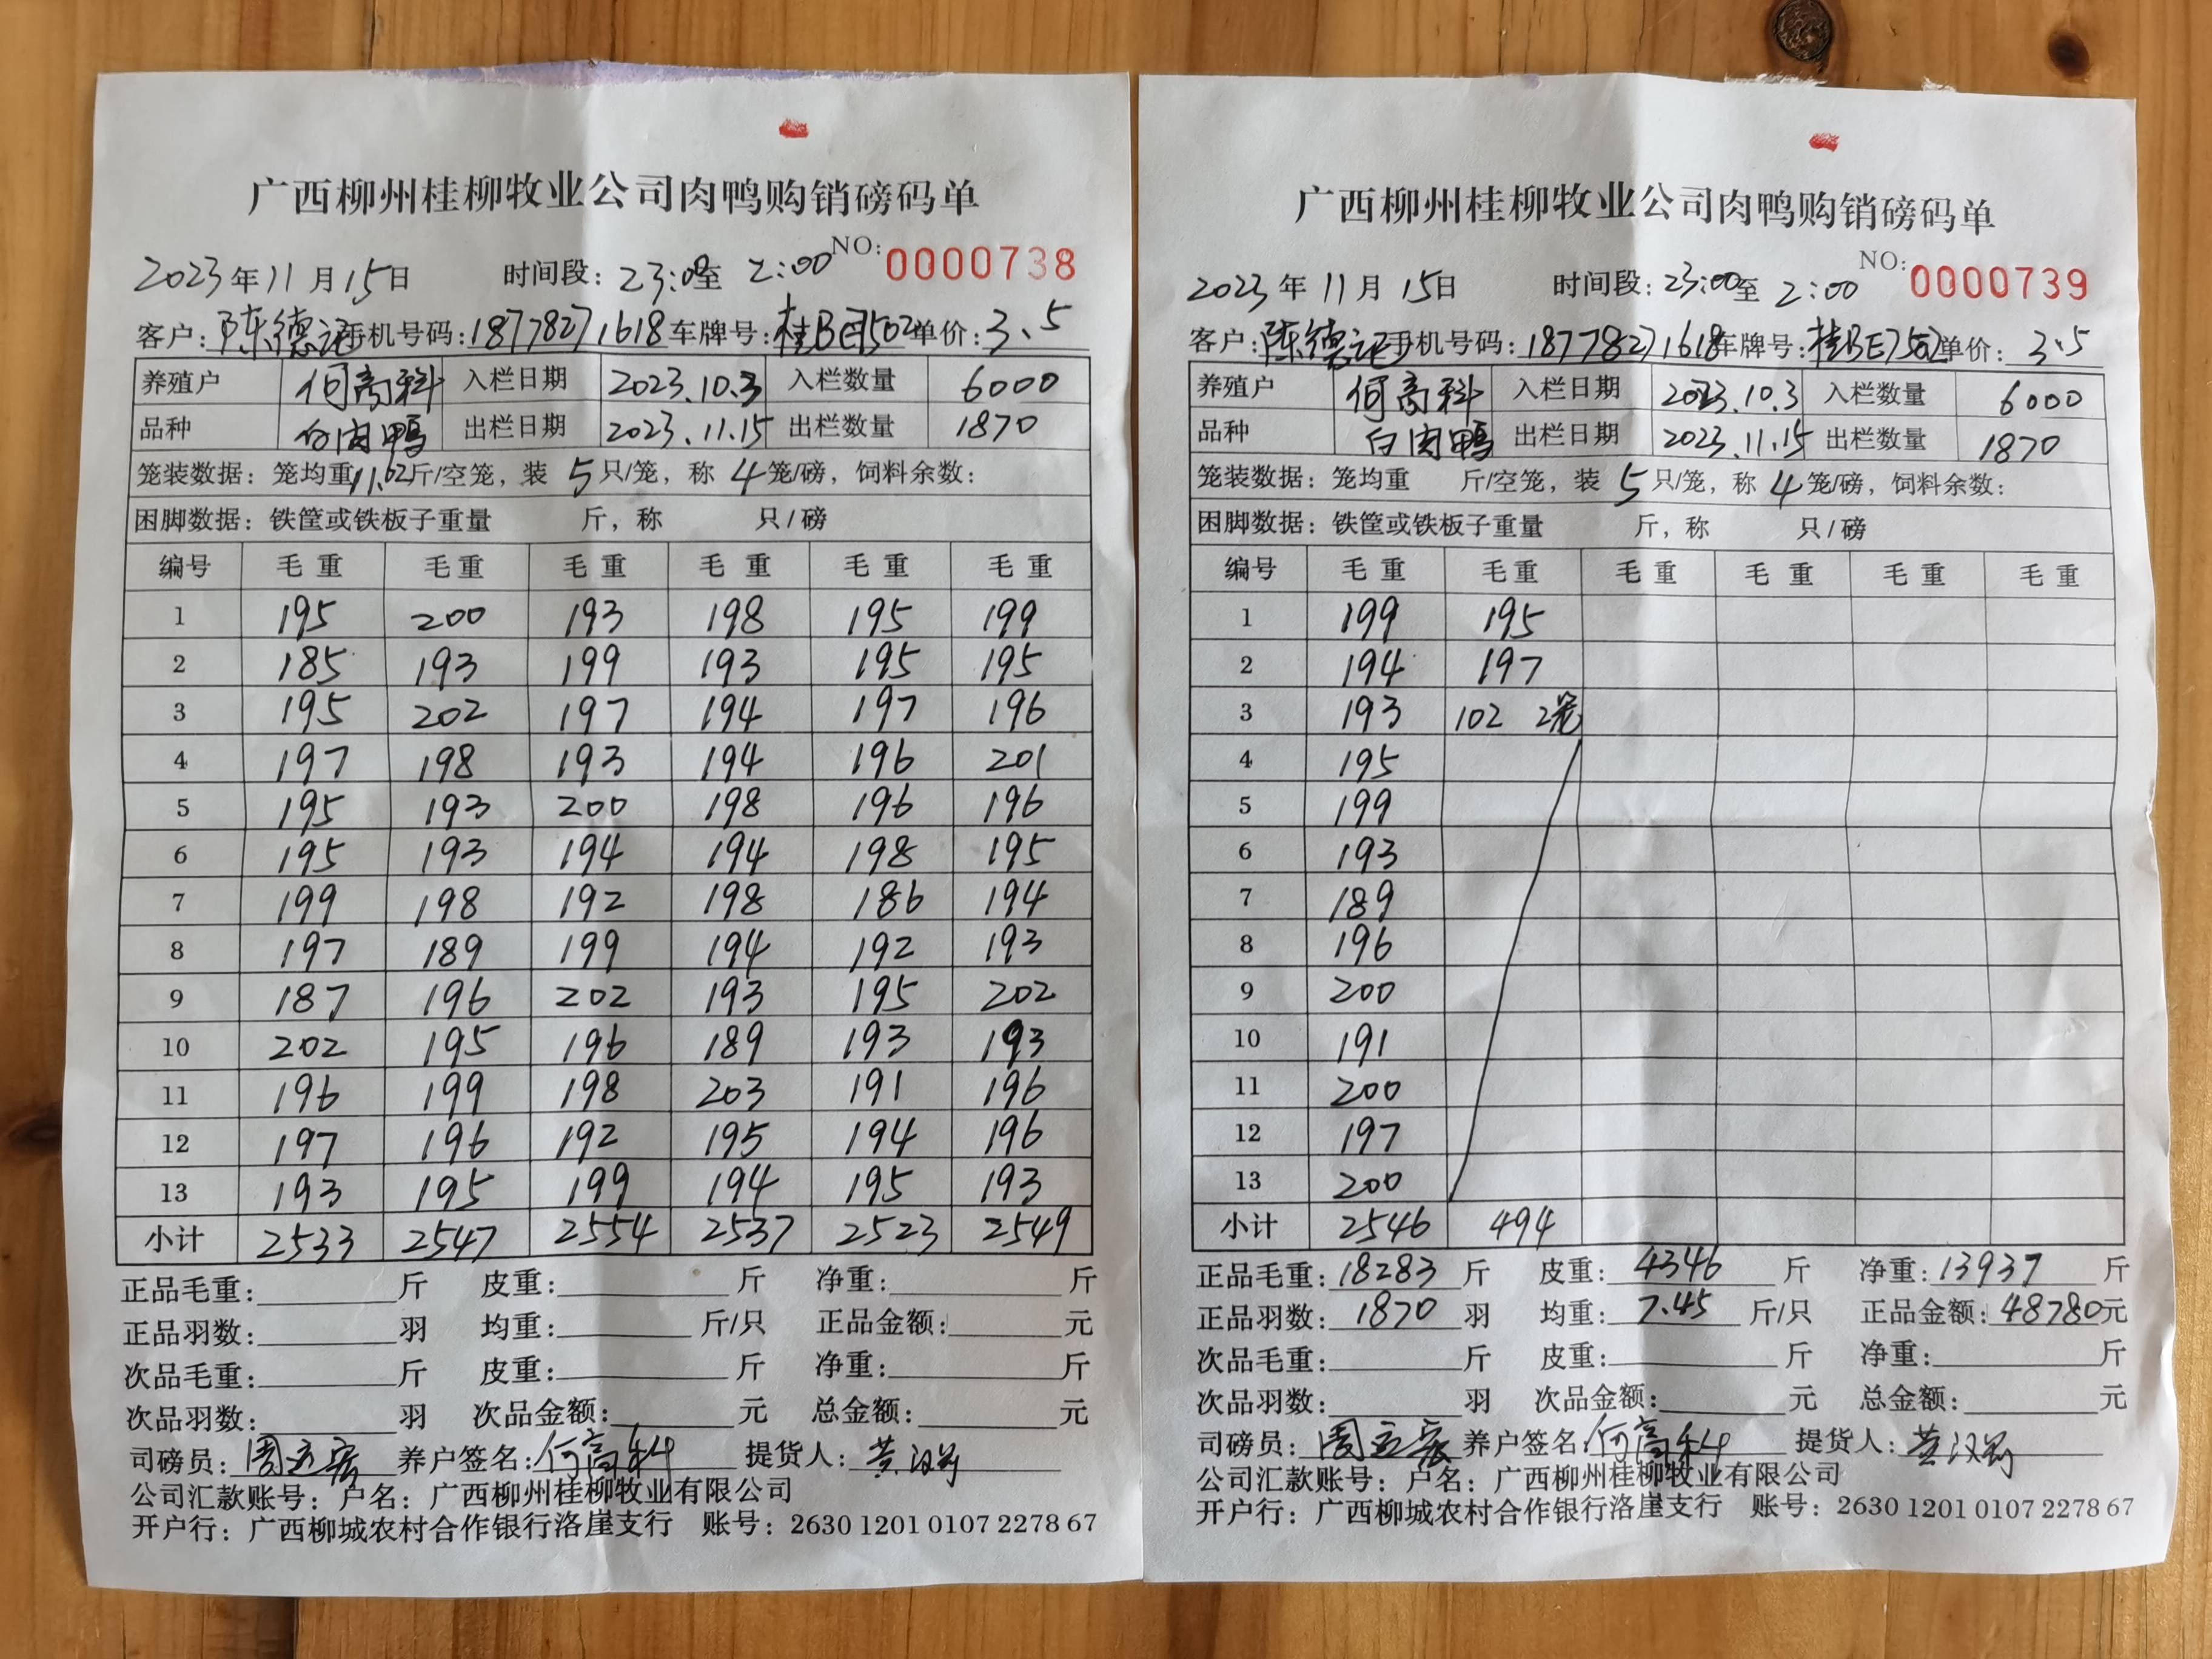 广西柳州桂柳牧业公司肉鸭购销磅码单
NO: 0000738
2023年11月15日 时间段：23:00至 2:00
客户：陈德记 手机号码：18778271618 车牌号：桂BE7502 单价：3.5
养殖户 何高科 入栏日期 2023.10.3 入栏数量 6000
品种 白肉鸭 出栏日期 2023.11.15 出栏数量 1870
笼装数据：笼均重11.02斤/空笼，装 5 只/笼，称 4 笼/磅，饲料余数：
困脚数据：铁筐或铁板子重量 斤，称 只/磅
编号 毛重 毛重 毛重 毛重 毛重 毛重
1 195 200 193 198 195 199
2 185 193 199 193 195 195
3 195 202 197 194 197 196
4 197 198 193 194 196 201
5 195 193 200 198 196 196
6 195 193 194 194 198 195
7 199 198 192 198 186 194
8 197 189 199 194 192 193
9 187 196 202 193 195 202
10 202 195 196 189 193 193
11 196 199 198 203 191 196
12 197 196 192 195 194 196
13 193 195 199 194 195 193
小计 2533 2547 2554 2537 2523 2549
正品毛重： 斤 皮重： 斤 净重： 斤
正品羽数： 羽 均重： 斤/只 正品金额： 元
次品毛重： 斤 皮重： 斤 净重： 斤
次品羽数： 羽 次品金额： 元 总金额： 元
司磅员： 养户签名：何高科 提货人：
公司汇款账号：户名：广西柳州桂柳牧业有限公司
开户行：广西柳城农村合作银行洛崖支行 账号：2630 1201 0107 2278 67
广西柳州桂柳牧业公司肉鸭购销磅码单
NO: 0000739
2023年11月15日 时间段：23:00至 2:00
客户：陈德记 手机号码：18778271618 车牌号：桂BE7502 单价：3.5
养殖户 何高科 入栏日期 2023.10.3 入栏数量 6000
品种 白肉鸭 出栏日期 2023.11.15 出栏数量 1870
笼装数据：笼均重 斤/空笼，装 5 只/笼，称 4 笼/磅，饲料余数：
困脚数据：铁筐或铁板子重量 斤，称 只/磅
编号 毛重 毛重 毛重 毛重 毛重 毛重
1 199 195
2 194 197
3 193 102 2笼
4 195
5 199
6 193
7 189
8 196
9 200
10 191
11 200
12 197
13 200
小计 2546 494
正品毛重：18283 斤 皮重：4346 斤 净重：13937 斤
正品羽数：1870 羽 均重：7.45 斤/只 正品金额：48780元
次品毛重： 斤 皮重： 斤 净重： 斤
次品羽数： 羽 次品金额： 元 总金额： 元
司磅员： 养户签名：何高科 提货人：
公司汇款账号：户名：广西柳州桂柳牧业有限公司
开户行：广西柳城农村合作银行洛崖支行 账号：2630 1201 0107 2278 67